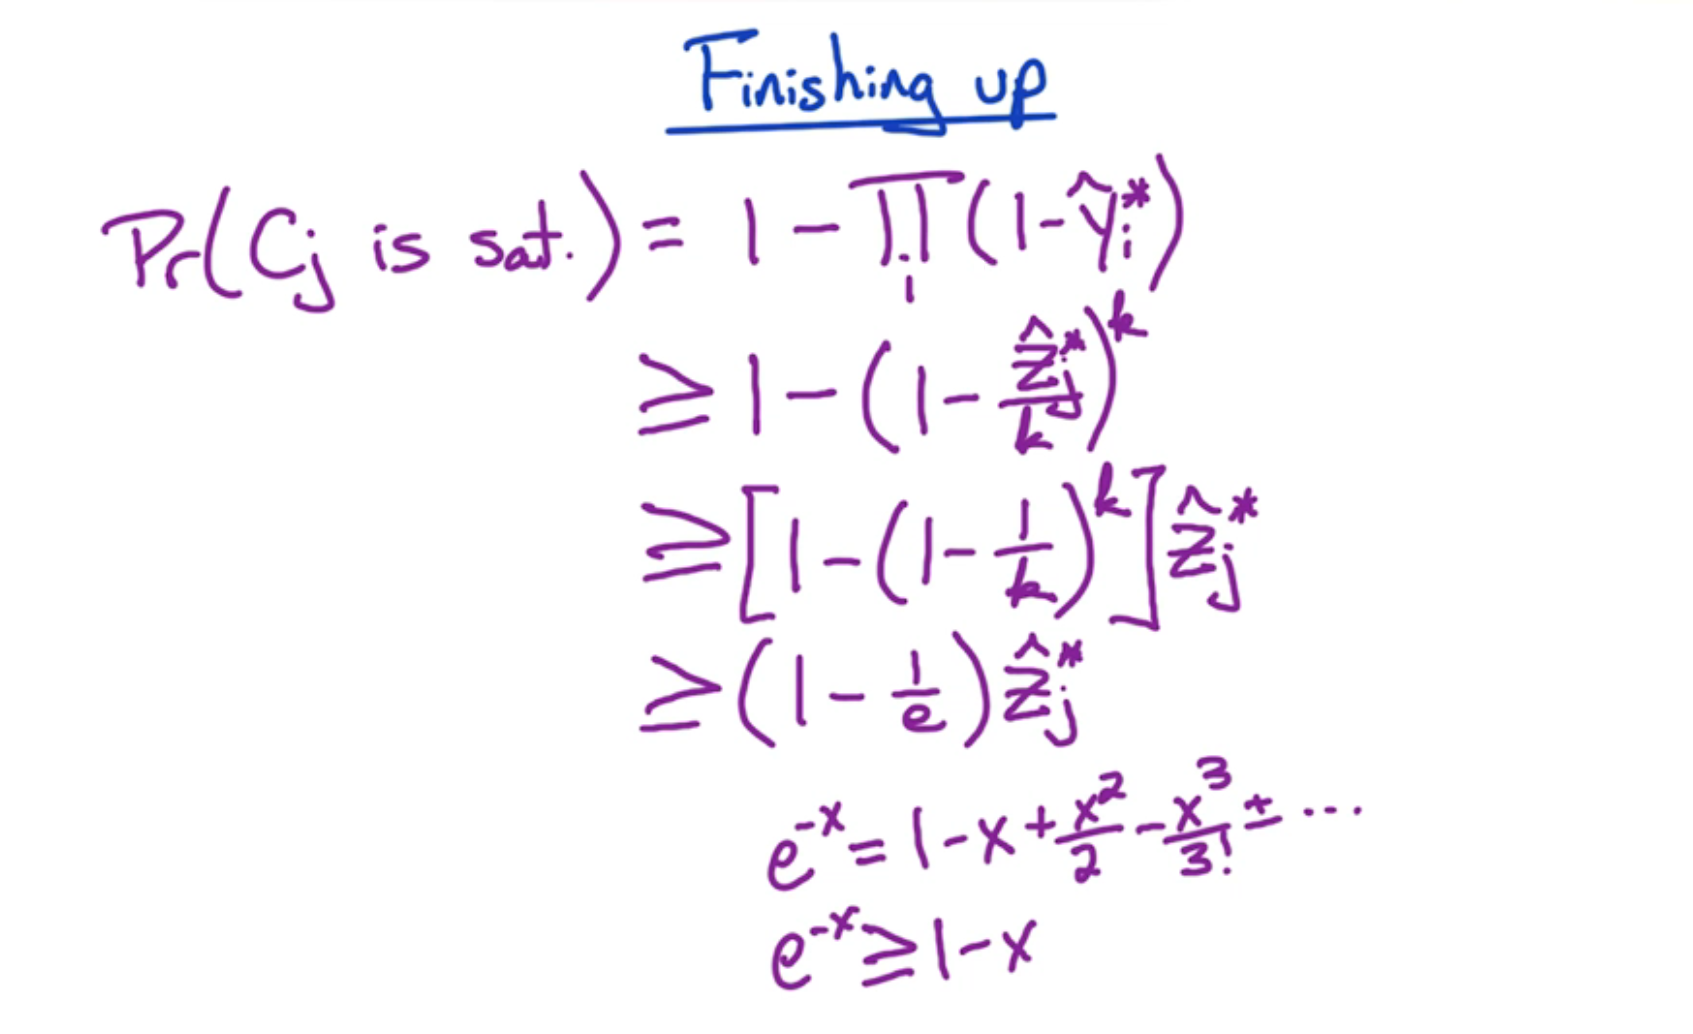 Finishing up
Pr(Cj is sat.) = 1 - ∏_i (1 - ŷ_i^*)
≥ 1 - (1 - ẑ_j^*/k)^k
≥ [1 - (1 - 1/k)^k] ẑ_j^*
≥ (1 - 1/e) ẑ_j^*
e^{-x} = 1 - x + x^2/2 - x^3/3! ± ...
e^{-x} ≥ 1 - x